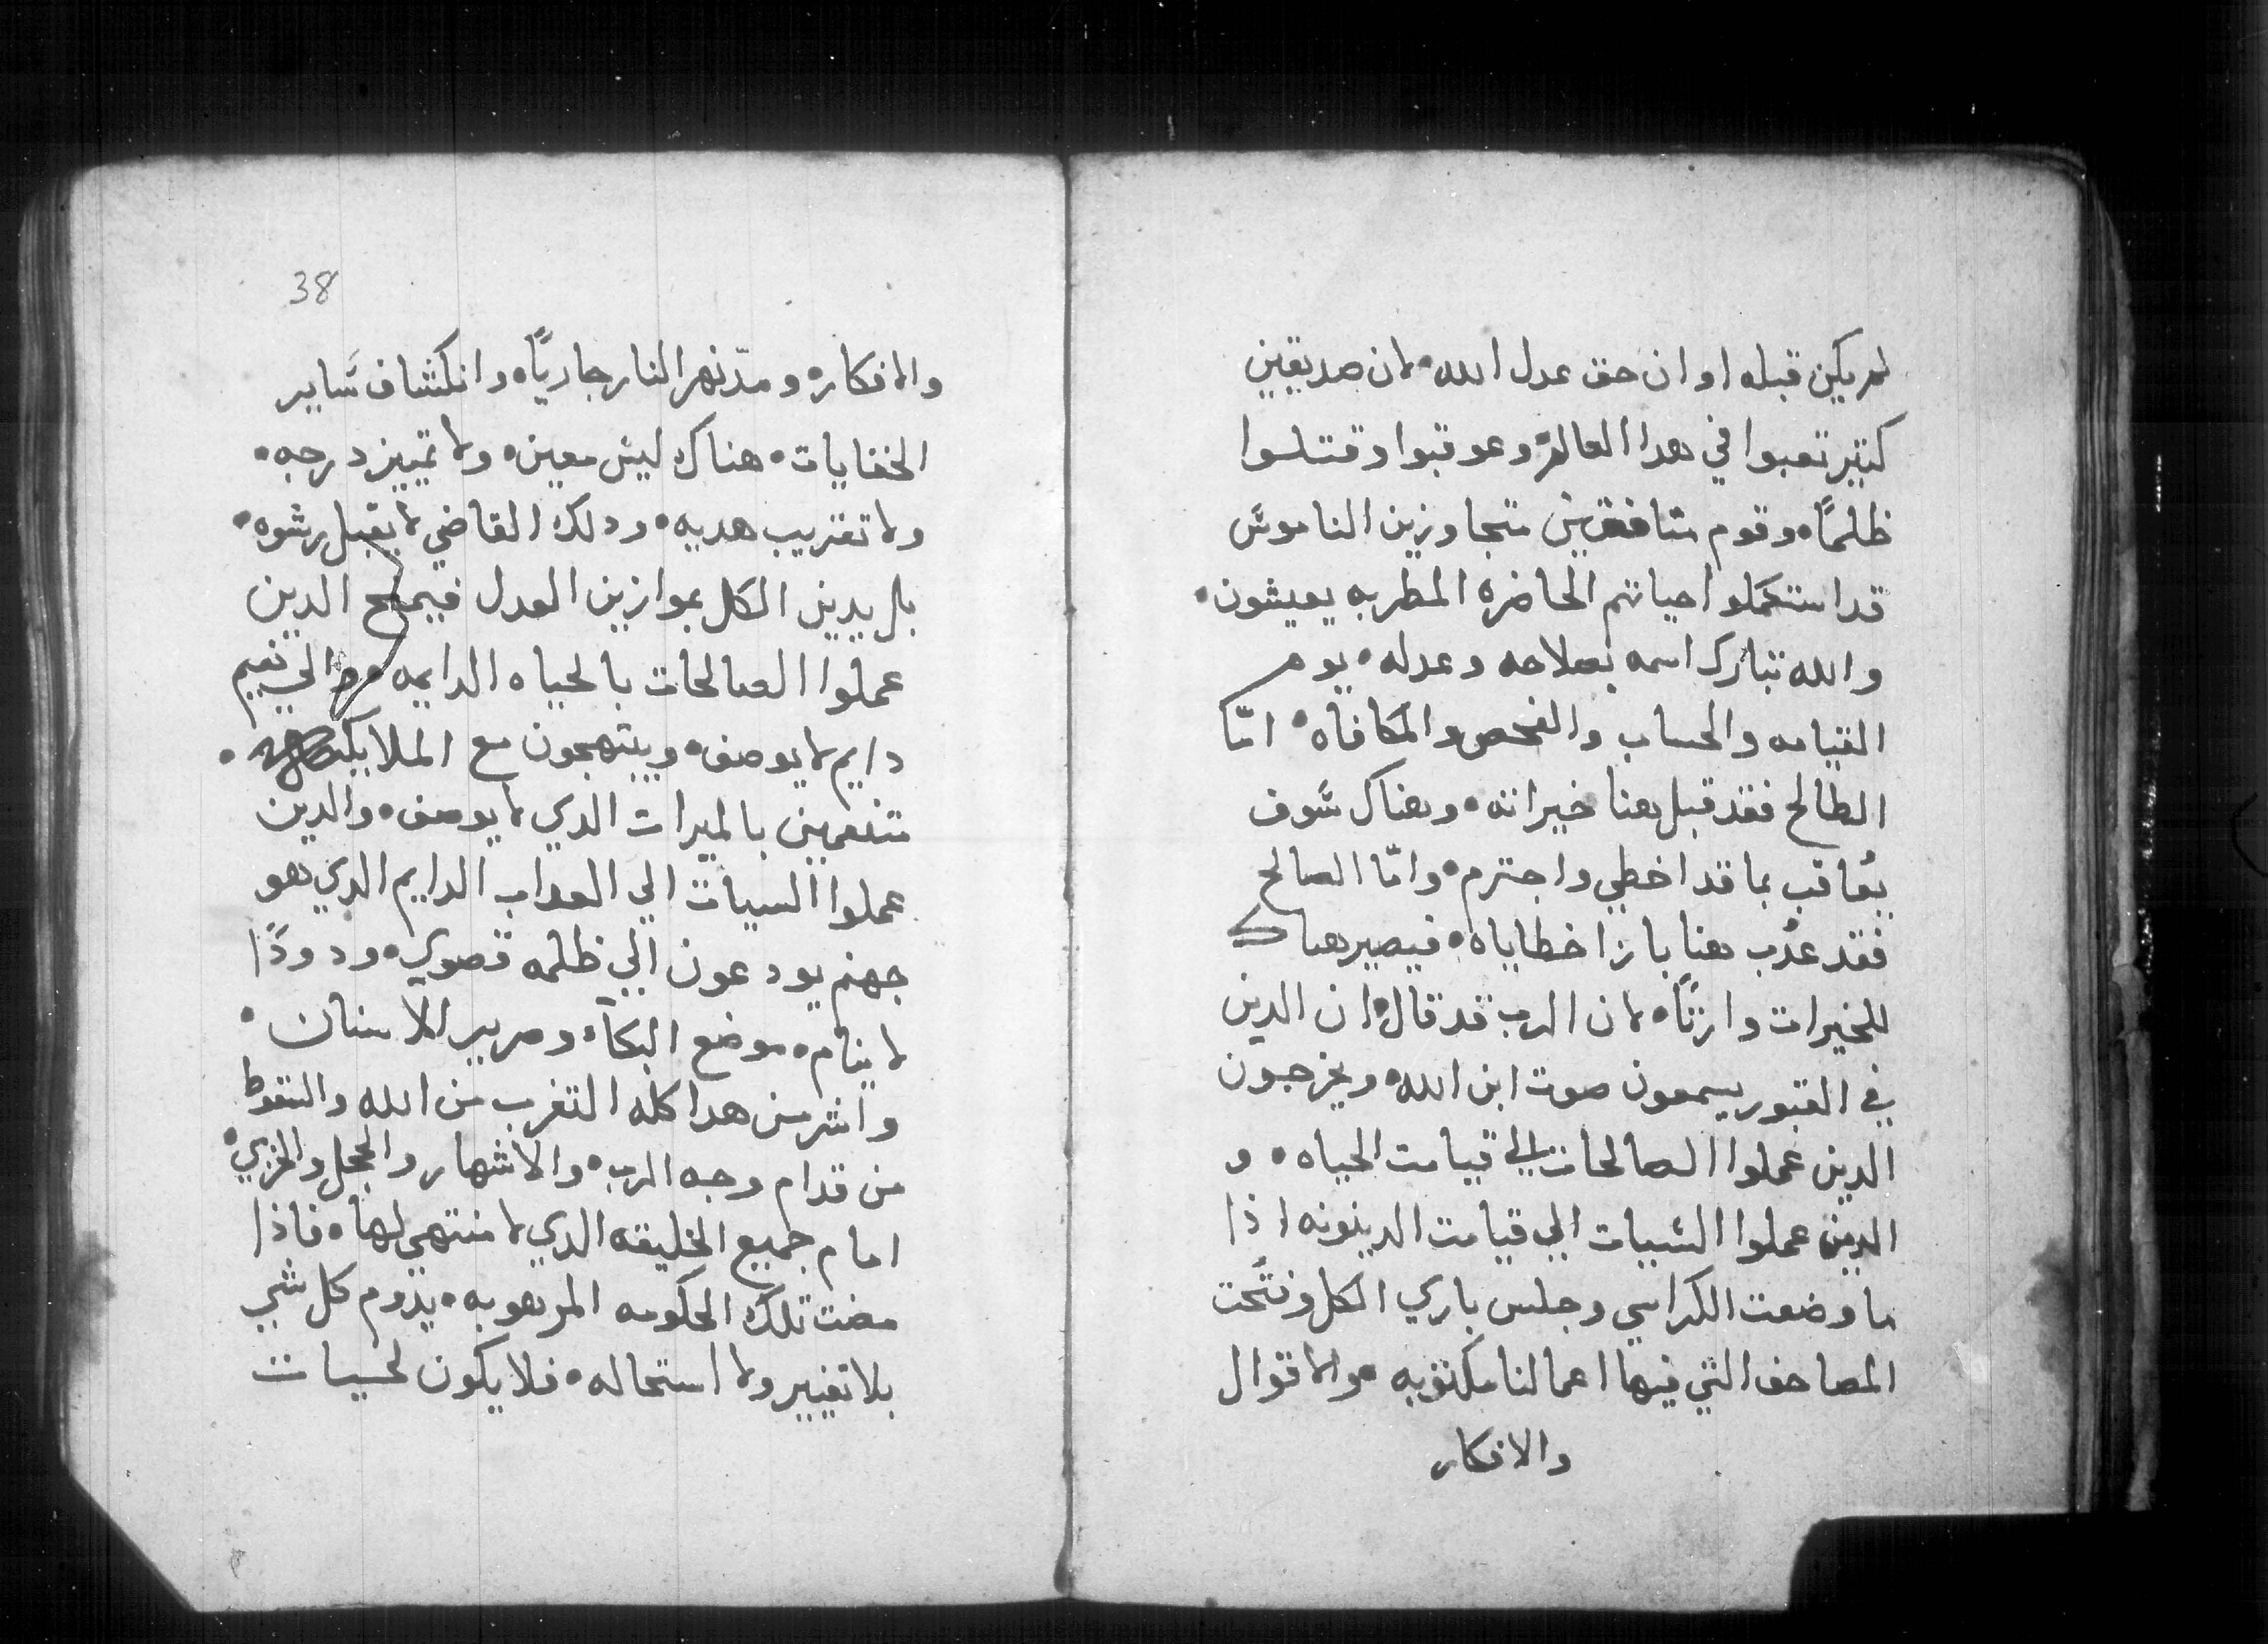 لم يكن قبله اوان حق عدل الله • لان صديقين
كتير تعبوا في هدا العالم • وعوقبوا وقتلوا
ظلمًا • وقوم منافقين متجاوزين الناموس
قد استكملوا حياتهم الحاضره المطربه يعيشون •
والله تبارك اسمه بصلاحه وعدله • يوم
القيامه والحساب والفحص والمكافاه • امّا
الطالح فقد قبل هنا خيراته • وهناك سوف
يُعاقب بما قد اخطي واجترم • وامّا الصالح
فقد عُدب هنا بازا خطاياه • فيصير هناك
للخيرات وارتًا • لان الرب قد قال • ان الدين
في القبور يسمعون صوت ابن الله • ويخرجون
الدين عملوا الصالحات الي قيامت الحياه • و
الدين عملوا السيات الي قيامت الدينونه اذا
ما وضعت الكراسي وجلس باري الكل وفتحت
المصاحف التي فيها اعمالنا مكتوبه • والاقوال
والافكار
38
والافكار • ومدّ نهر النار جاريًا • وانكشاف ساير
الخفايات • هناك ليس معين • ولا تمييز درجه •
ولا تقريب هديه • ودلك القاضي لا يقبل رشوه •
بل يدين الكل بموازين العدل فيمنح الدين
عملوا الصالحات بالحياه الدايمه • والي نعيم
دايم لا يوصف • ويبتهجون مع الملايكه •
متنعمين بالميرات الدي لا يوصف • والدين
عملوا السيات الي العداب الدايم الدي هو
جهنم يودعون الي ظلمه قصوي • ودودًا
لا ينام • موضع البكاء • وصرير الاسنان •
واشر من هدا كله التغرب من الله والسقوط
من قدام وجه الرب • والاشهار والخجل والخزي •
امام جميع الخليقه الدي لا منتهي لها • فاذا
مضت تلك الحكومه المرهوبه • يدوم كل شي
بلا تغيير ولا استحاله • فلا يكون لحسيات